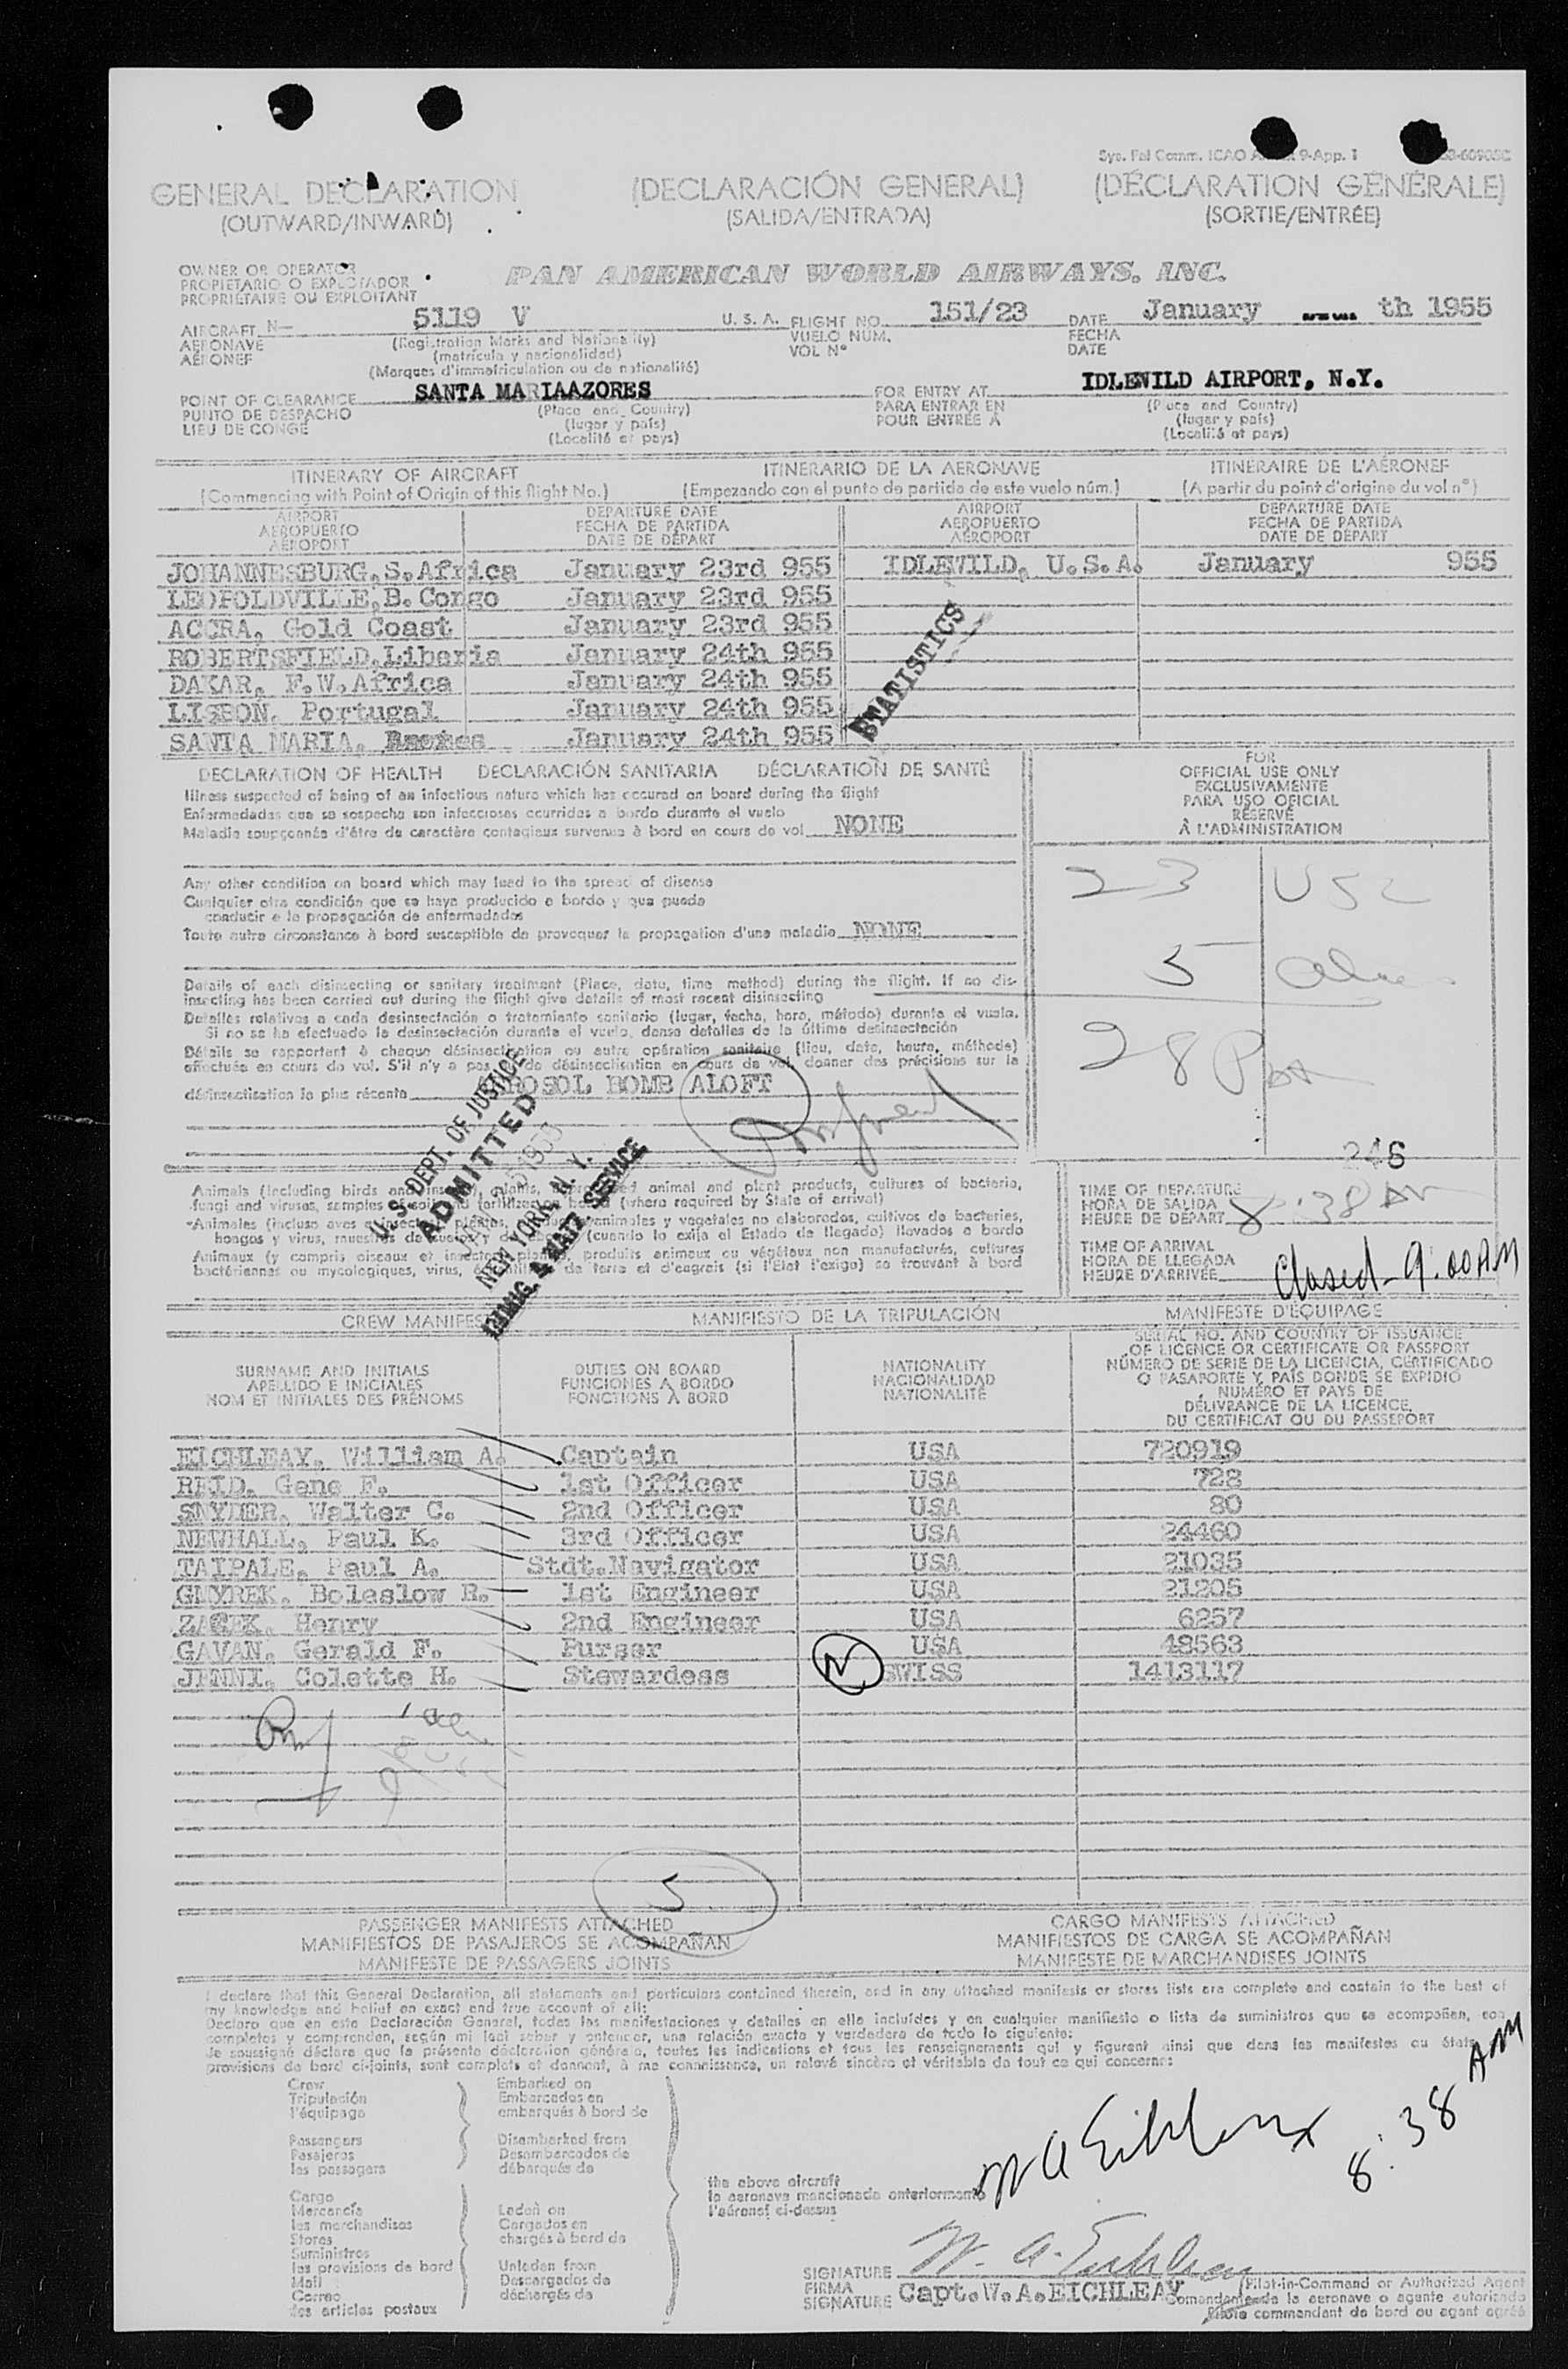 Sys. Fal Comm. ICAO 9-App. 1
GENERAL DECLARATION (DECLARACIÓN GENERAL) (DÉCLARATION GÉNÉRALE)
(OUTWARD/INWARD) (SALIDA/ENTRADA) (SORTIE/ENTRÉE)
OWNER OR OPERATOR
PROPIETARIO O EXPLOTADOR PAN AMERICAN WORLD AIRWAYS, INC.
PROPRIÉTAIRE OU EXPLOITANT
AIRCRAFT N— 5119 V U. S. A. FLIGHT NO. 151/23 DATE January th 1955
AERONAVE (Registration Marks and Nationality) VUELO NÚM. FECHA
AÉRONEF (matrícula y nacionalidad) VOL Nº DATE
(Marques d'immatriculation ou de nationalité)
POINT OF CLEARANCE SANTA MARIAAZORES FOR ENTRY AT IDLEWILD AIRPORT, N.Y.
PUNTO DE DESPACHO (Place and Country) PARA ENTRAR EN (Place and Country)
LIEU DE CONGÉ (lugar y país) POUR ENTRÉE À (lugar y país)
(Localité et pays) (Localité et pays)
ITINERARY OF AIRCRAFT ITINERARIO DE LA AERONAVE ITINERAIRE DE L'AÉRONEF
(Commencing with Point of Origin of this flight No.) (Empezando con el punto de partida de este vuelo núm.) (A partir du point d'origine du vol nº)
AIRPORT DEPARTURE DATE AIRPORT DEPARTURE DATE
AEROPUERTO FECHA DE PARTIDA AEROPUERTO FECHA DE PARTIDA
AÉROPORT DATE DE DÉPART AÉROPORT DATE DE DÉPART
JOHANNESBURG,S.Africa January 23rd 955 IDLEWILD, U.S.A. January 955
LEOPOLDVILLE,B.Congo January 23rd 955
ACCRA, Gold Coast January 23rd 955
ROBERTSFIELD,Liberia January 24th 955
DAKAR, F.W.Africa January 24th 955
LISBON, Portugal January 24th 955
SANTA MARIA, January 24th 955
STATISTICS
DECLARATION OF HEALTH DECLARACIÓN SANITARIA DÉCLARATION DE SANTÉ
Illness suspected of being of an infectious nature which has occured on board during the flight
Enfermedades que se sospecha son infecciosas ocurridas a bordo durante el vuelo
Maladie soupçonnée d'être de caractère contagieux survenue à bord en cours de vol NONE
FOR
OFFICIAL USE ONLY
EXCLUSIVAMENTE
PARA USO OFICIAL
RÉSERVÉ
À L'ADMINISTRATION
23 USC
5
28
Any other condition on board which may lead to the spread of disease
Cualquier otra condición que se haya producido a bordo y que pueda
conducir e la propagación de enfermedades
Toute autre circonstance à bord susceptible de provoquer la propagation d'une maladie NONE
Details of each disinsecting or sanitary treatment (Place, date, time method) during the flight. If no dis-
insecting has been carried out during the flight give details of most recent disinsecting
Detalles relativos a cada desinsectación o tratamiento sanitario (lugar, fecha, hora, método) durante el vuelo.
Si no se ha efectuado la desinsectación durante el vuelo, danse detalles de la última desinsectación
Détails se rapportant à chaque désinsectisation ou autre opération sanitaire (lieu, date, heure, méthode)
effectuée en cours de vol. S'il n'y a pas de désinsectisation en cours de vol, donner des précisions sur la
désinsectisation la plus récente ROSOL BOMB ALOFT
U. S. DEPT. OF JUSTICE
ADMITTED
NEW YORK, N. Y.
IMMIG. & NATZ SERVICE
246
Animals (including birds and insects), plants, animal and plant products, cultures of bacteria,
fungi and viruses, samples of soil and fertilizer on board (where required by State of arrival)
Animales (incluso aves e insectos), plantas, animales y vegetales no elaborados, cultivos de bacterias,
hongos y virus, muestras de suelo y (cuando lo exija el Estado de llegada) llevados a bordo
Animaux (y compris oiseaux et insectes), plantes, produits animaux ou végétaux non manufacturés, cultures
bactériennes ou mycologiques, virus, de terre et d'engrais (si l'Etat l'exige) se trouvant à bord
TIME OF DEPARTURE
HORA DE SALIDA 8:38 AM
HEURE DE DÉPART
TIME OF ARRIVAL
HORA DE LLEGADA Closed - 9:00 AM
HEURE D'ARRIVÉE
CREW MANIFEST MANIFIESTO DE LA TRIPULACIÓN MANIFESTE D'ÉQUIPAGE
SURNAME AND INITIALS DUTIES ON BOARD NATIONALITY SERIAL NO. AND COUNTRY OF ISSUANCE
APELLIDO E INICIALES FUNCIONES A BORDO NACIONALIDAD OF LICENCE OR CERTIFICATE OR PASSPORT
NOM ET INITIALES DES PRÉNOMS FONCTIONS À BORD NATIONALITÉ NÚMERO DE SERIE DE LA LICENCIA, CERTIFICADO
O PASAPORTE Y PAÍS DONDE SE EXPIDIÓ
NUMÉRO ET PAYS DE
DÉLIVRANCE DE LA LICENCE,
DU CERTIFICAT OU DU PASSEPORT
EICHLEAY, William A. Captain USA 720919
REID, Gene F. 1st Officer USA 728
SNYDER, Walter C. 2nd Officer USA 80
NEWHALL, Paul K. 3rd Officer USA 24460
TAIPALE, Paul A. Stdt.Navigator USA 21035
GMYREK, Boleslow R. 1st Engineer USA 21205
ZACEK, Henry 2nd Engineer USA 6257
GAVAN, Gerald F. Purser USA 48563
JENNI, Colette H. Stewardess N SWISS 1413117
5
PASSENGER MANIFESTS ATTACHED CARGO MANIFESTS ATTACHED
MANIFIESTOS DE PASAJEROS SE ACOMPAÑAN MANIFIESTOS DE CARGA SE ACOMPAÑAN
MANIFESTE DE PASSAGERS JOINTS MANIFESTE DE MARCHANDISES JOINTS
I declare that this General Declaration, all statements and particulars contained therein, and in any attached manifests or stores lists are complete and contain to the best of
my knowledge and belief an exact and true account of all:
Declaro que en esta Declaración General, todas las manifestaciones y detalles en ella incluídos y en cualquier manifiesto o lista de suministros que se acompañen, son
completos y comprenden, según mi leal saber y entender, una relación exacta y verdadera de todo lo siguiente:
Je soussigné déclare que la présente déclaration générale, toutes les indications et tous les renseignements qui y figurent ainsi que dans les manifestes ou états
provisions de bord ci-joints, sont complets et donnent, à ma connaissance, un relevé sincère et véritable de tout ce qui concerne:
Crew Embarked on
Tripulación Embarcados en
l'équipage embarqués à bord de
Passengers Disembarked from
Pasajeros Desembarcados de
les passagers débarqués de
the above aircraft
la aeronave mencionada anteriormente
l'aéronef ci-dessus
Cargo
Mercancía Laden on
les marchandises Cargados en
Stores chargés à bord de
Suministros
les provisions de bord Unladen from
Mail Descargados de
Correo déchargés de
les articles postaux
W A Eichleay 8:38 AM
SIGNATURE W. A. Eichleay
FIRMA Capt.W.A.EICHLEAY (Pilot-in-Command or Authorized Agent
SIGNATURE Comandante de la aeronave o agente autorizado
Pilote commandant de bord ou agent agréé